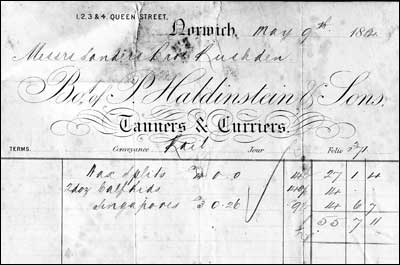 1, 2, 3 & 4, QUEEN STREET,
Norwich, May 9th 18
Messrs Sanders Bros Rushden
Bot. of P. Haldinstein & Sons.
Tanners & Curriers.
TERMS. Conveyance Rail Jour Folio
Wax Splits 0.0 27 1 4
2 doz Calf kids 14
Singapores 3 0.26 9 14 6 7
55 7 11